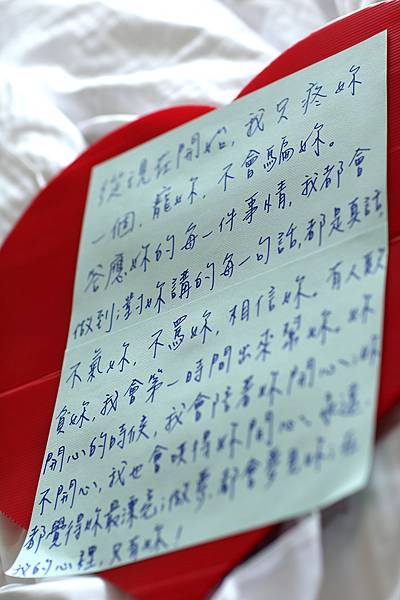 從現在開始,我只疼妳
一個,寵妳,不會騙妳。
答應妳的每一件事情,我都會
做到;對妳講的每一句話,都是真話。
不氣妳,不罵妳,相信妳。有人欺
負妳,我會第一時間出來幫妳。妳
開心的時候,我會陪著妳開心;妳
不開心,我也會哄得妳開心。永遠
都覺得妳最漂亮;做夢,都會夢見妳;在
我的心裡,只有妳!